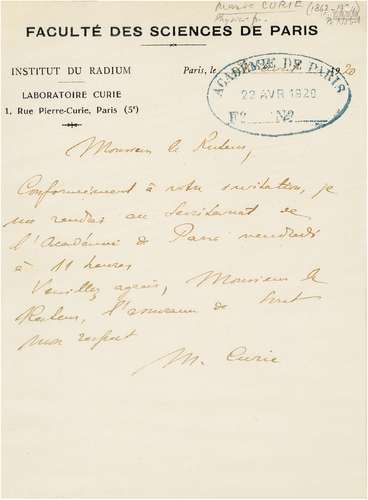 Marie CURIE (1867-
FACULTÉ DES SCIENCES DE PARIS
INSTITUT DU RADIUM
LABORATOIRE CURIE
1, Rue Pierre-Curie, Paris (5e)
Paris, le
20
ACADÉMIE DE PARIS
22 AVR 1920
Fo No
Monsieur le Recteur,
Conformément à votre invitation, je
me rendrai au Secrétariat de
l'Académie de Paris vendredi
à 11 heures
Veuillez agréer, Monsieur le
Recteur, l'assurance de tout
mon respect
M. Curie